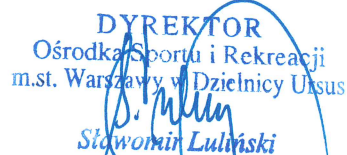 DYREKTOR
Ośrodka Sportu i Rekreacji
m.st. Warszawy w Dzielnicy Ursus
Sławomir Luliński